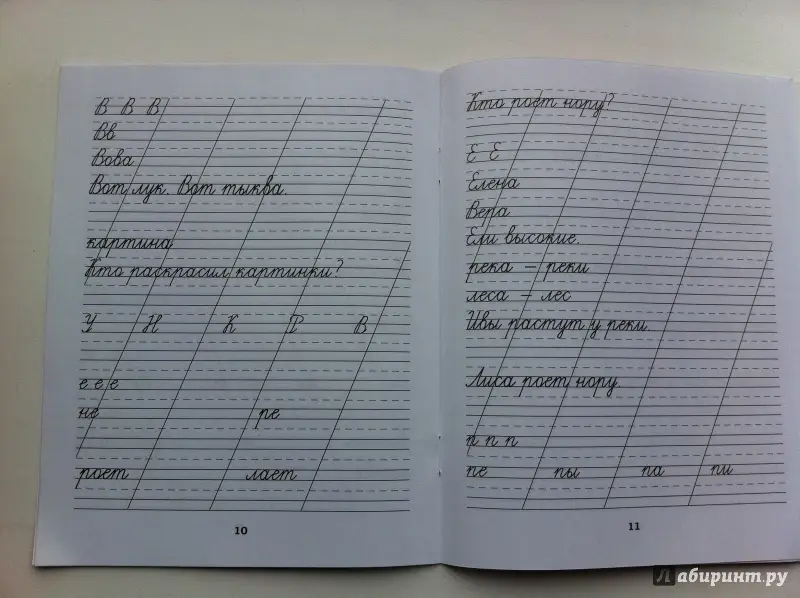 В В В
Вв
Вова
Вот лук. Вот тыква.
картина
Кто раскрасил картинки?
У Н К Т В
е е е
не ре
роет лает
10
Кто роет нору?
Е Е
Елена
Вера
Ели высокие.
река – реки
леса – лес
Ивы растут у реки.
Лиса роет нору.
п п п
пе пы па пи
11
Лабиринт.ру